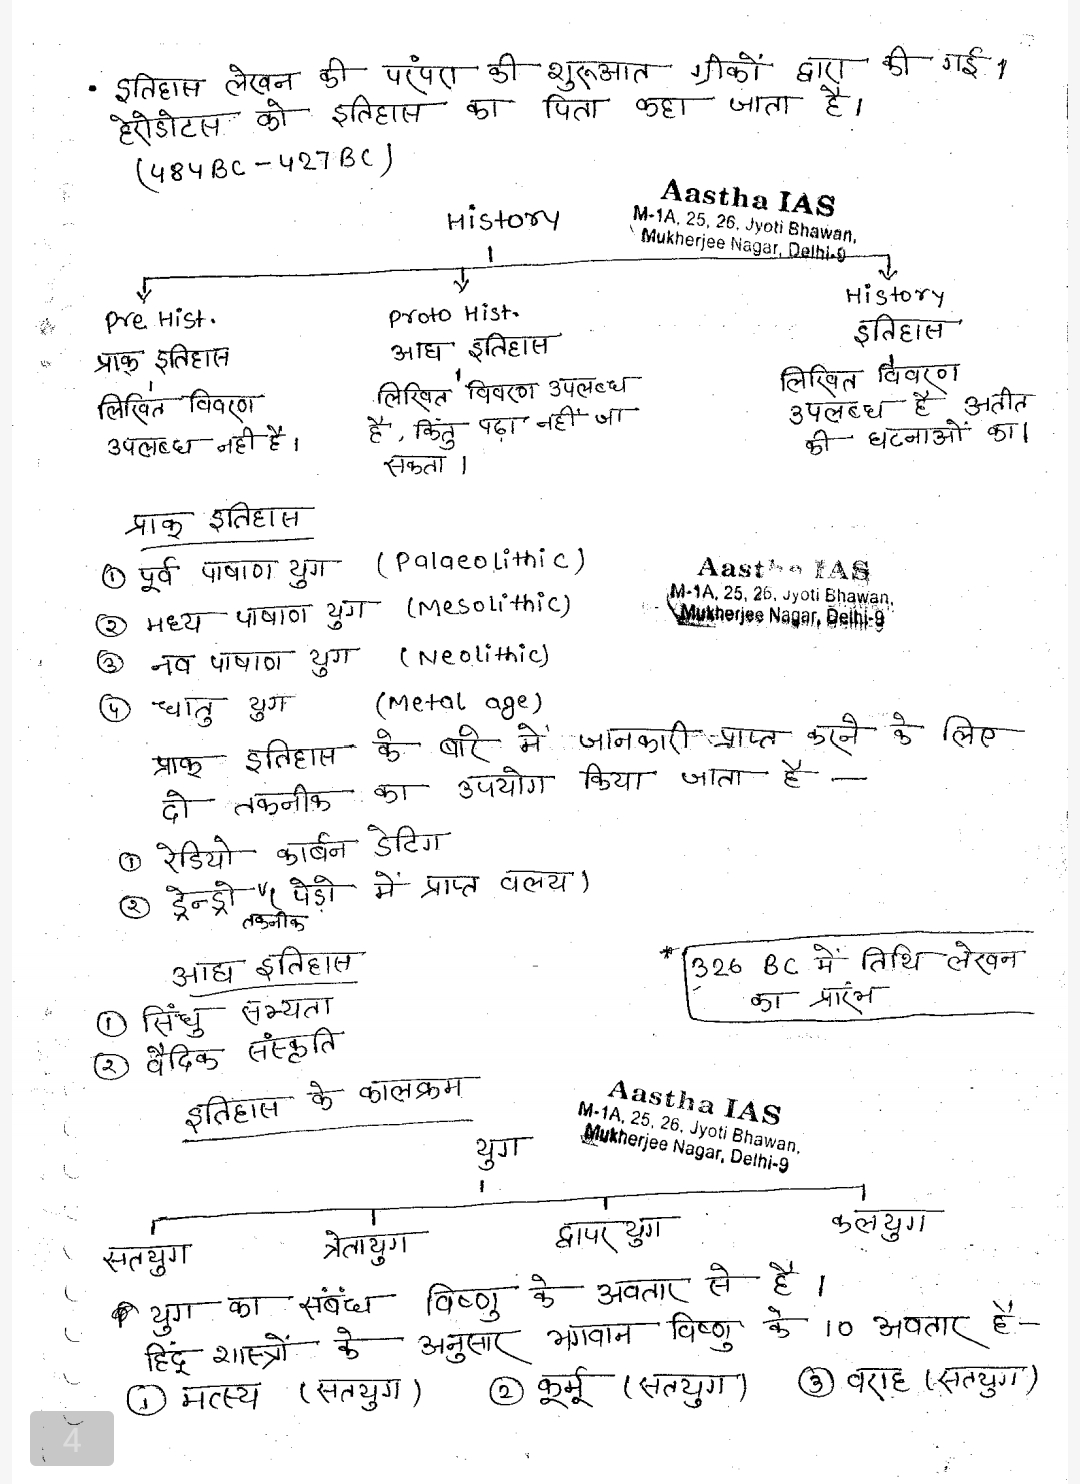 • इतिहास लेखन की परंपरा की शुरूआत ग्रीकों द्वारा की गई।
हेरोडोटस को इतिहास का पिता कहा जाता है।
(484BC - 427BC)
Aastha IAS
M-1A, 25, 26, Jyoti Bhawan,
Mukherjee Nagar, Delhi-9
History
Pre Hist.
प्राक् इतिहास
लिखित विवरण
उपलब्ध नहीं है।
Proto Hist.
आद्य इतिहास
लिखित विवरण उपलब्ध
है, किंतु पढ़ा नहीं जा
सकता।
History
इतिहास
लिखित विवरण
उपलब्ध है अतीत
की घटनाओं का।
प्राक् इतिहास
① पूर्व पाषाण युग (Palaeolithic)
② मध्य पाषाण युग (Mesolithic)
③ नव पाषाण युग (Neolithic)
④ धातु युग (Metal age)
Aastha IAS
M-1A, 25, 26, Jyoti Bhawan,
Mukherjee Nagar, Delhi-9
प्राक् इतिहास के बारे में जानकारी प्राप्त करने के लिए
दो तकनीक का उपयोग किया जाता है —
① रेडियो कार्बन डेटिंग
② ड्रेन्ड्रो तकनीक (पेड़ो में प्राप्त वलय)
आद्य इतिहास
① सिंधु सभ्यता
② वैदिक संस्कृति
* 326 BC में तिथि लेखन
का प्रारंभ
इतिहास के कालक्रम
Aastha IAS
M-1A, 25, 26, Jyoti Bhawan,
Mukherjee Nagar, Delhi-9
युग
सतयुग त्रेतायुग द्वापर युग कलयुग
युग का संबंध विष्णु के अवतार से है।
हिंदू शास्त्रों के अनुसार भगवान विष्णु के 10 अवतार हैं-
① मत्स्य (सतयुग) ② कूर्म (सतयुग) ③ वराह (सतयुग)
4